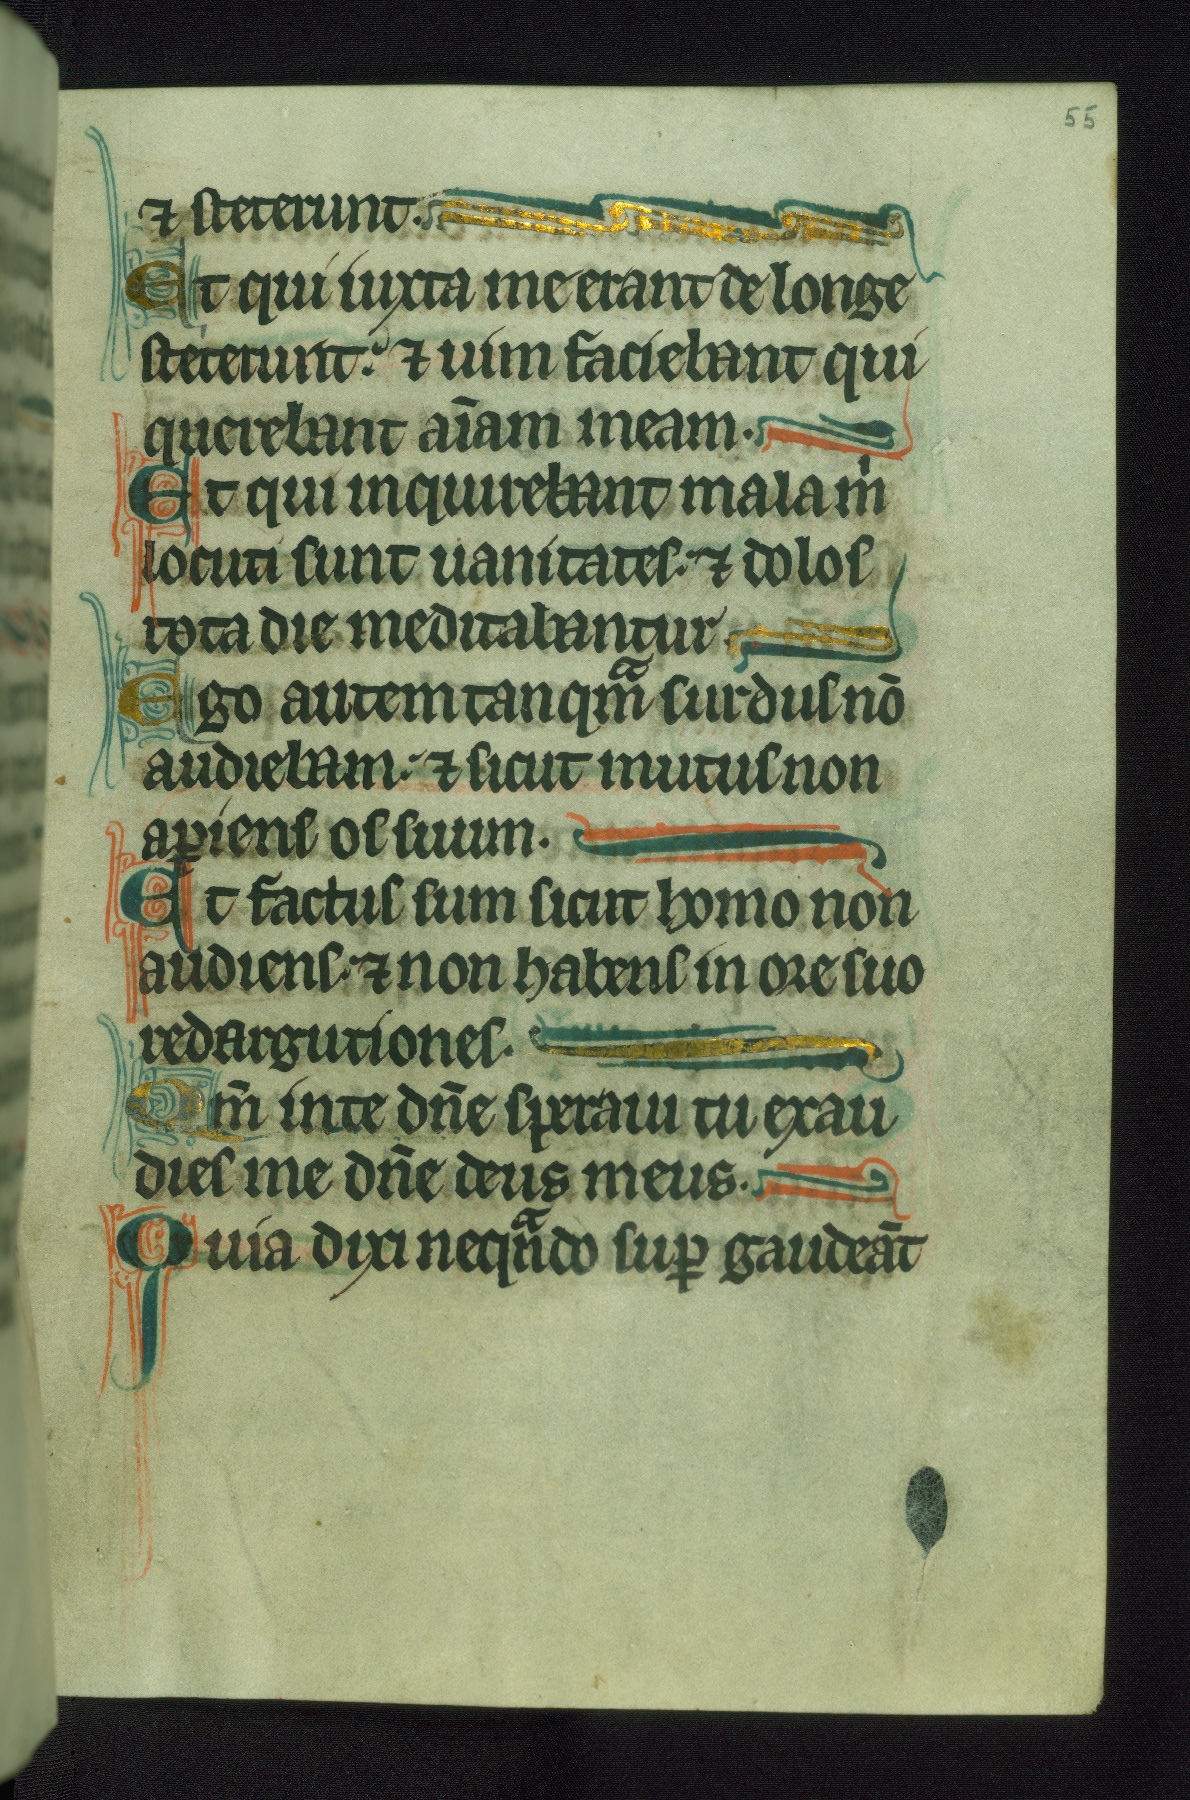 55
⁊ steterunt.
Et qui iuxta me erant de longe
steterunt. ⁊ uim faciebant qui
querebant aīam meam.
Et qui inquirebant mala m̍
locuti sunt uanitates. ⁊ dolos
tota die meditabantur
Ego autem tanqᵃm surdus nō
audiebam. ⁊ sicut mutus non
apiens os suum.
Et factus sum sicut homo non
audiens. ⁊ non habens in ore suo
redargutiones.
Qm̄ in te dn̄e speraui tu exau
dies me dn̄e deus meus.
Quia dixi neqᵃndo suꝑ gaudeāt